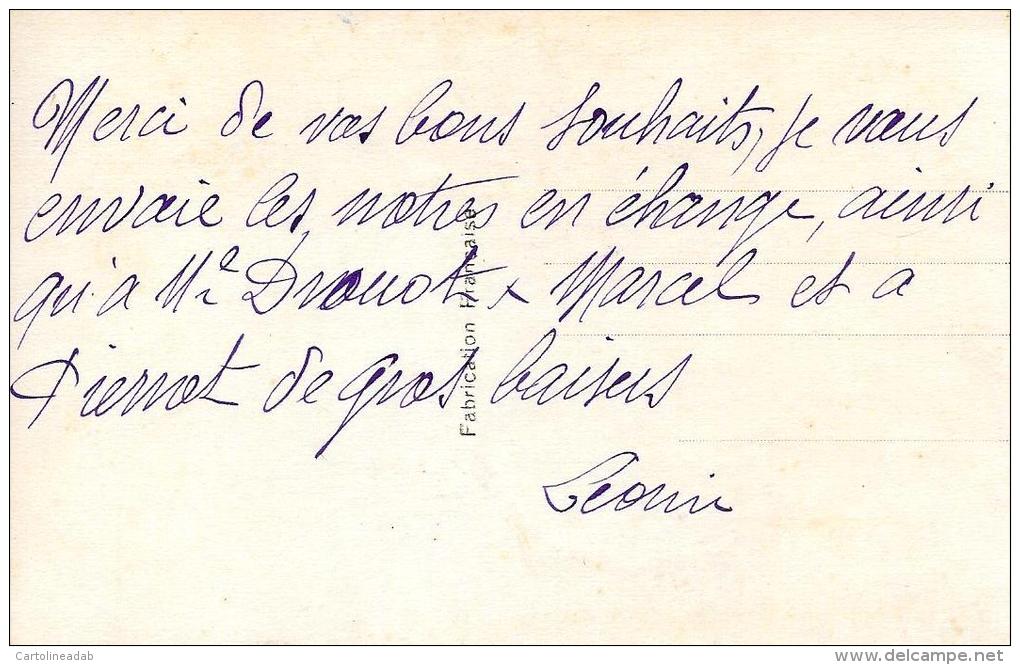 Merci de vos bons souhaits, je vous
envoie les notres en échange, ainsi
qu'a Mr Drouot x Marcel et a
Pierrot de gros baisers
Leonie
Fabrication Française
Cartolineadab
delcampe.net